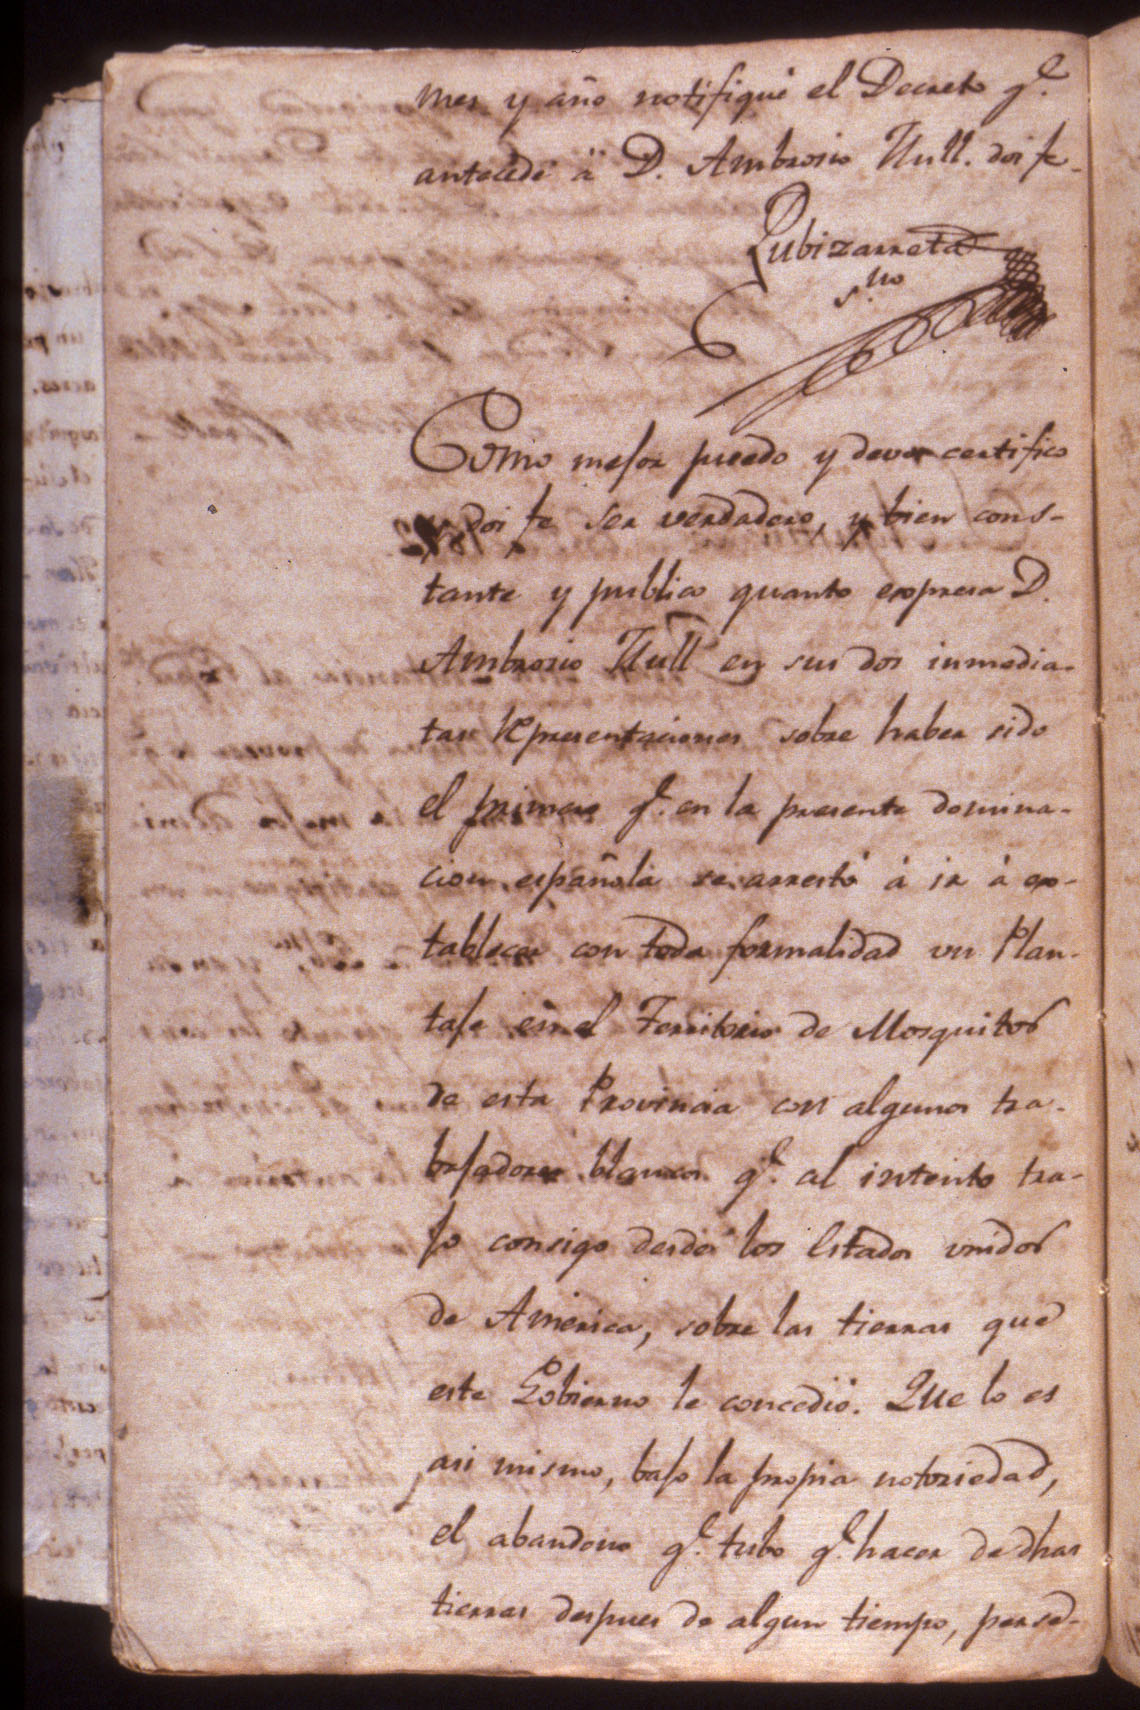 mes y año notifiqué el Decreto q.e
antecede â D. Ambrosio Hull. doi fe.
Zubizarreta
s.no
Como mejor puedo y devo certifico
y doi fe ser verdadero, y bien cons-
tante y publico quanto expresa D.
Ambrosio Hull en sus dos inmedia-
tas Representaciones sobre haber sido
el primero q.e en la presente domina-
cion española se arrestó á ir á es-
tablecer con toda formalidad un Plan-
taje en el Territorio de Mosquitos
de esta Provincia con algunos tra-
bajadores blancos q.e al intento tra-
jo consigo desde los Estados unidos
de America, sobre las tierras que
este Gobierno le concedió. Que lo es
asi mismo, bajo la propia notoriedad,
el abandono q.e tubo q.e hacer de dhas
tierras despues de algun tiempo, perse-